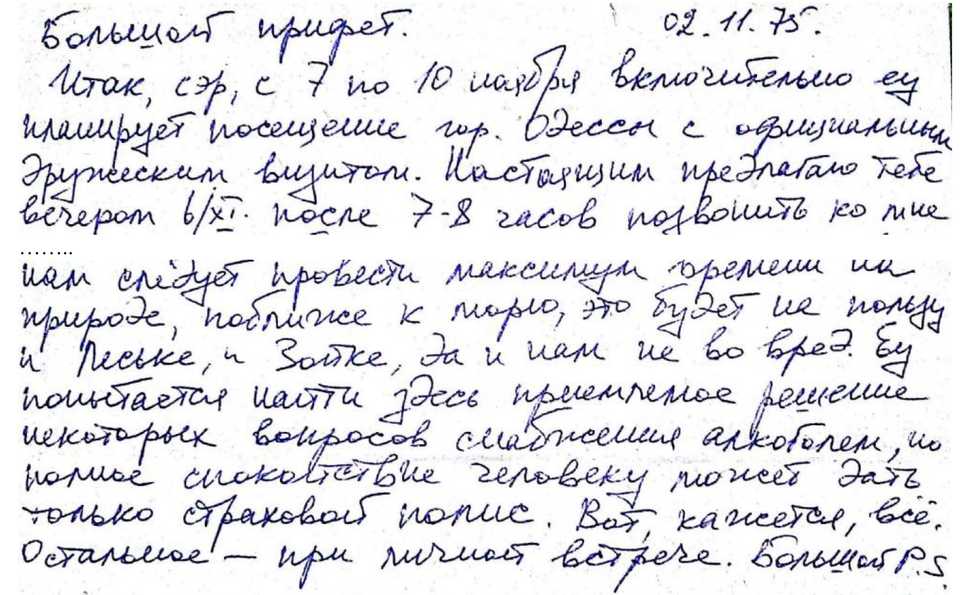 Большой прифет. 02.11.75.
Итак, сэр, с 7 по 10 ноября включительно ЕЦ
планирует посещение гор. Одессы с официальным
дружеским визитом. Настоящим предлагаю тебе
вечером 6/XI. после 7-8 часов позвонить ко мне
........
нам следует провести максимум времени на
природе, поближе к морю, это будет на пользу
и Леське, и Зойке, да и нам не во вред. ЕЦ
попытается найти здесь приемлемое решение
некоторых вопросов снабжения алкоголем, но
полное спокойствие человеку может дать
только страховой полис. Вот, кажется, всё.
Остальное — при личной встрече. Большой P.S.